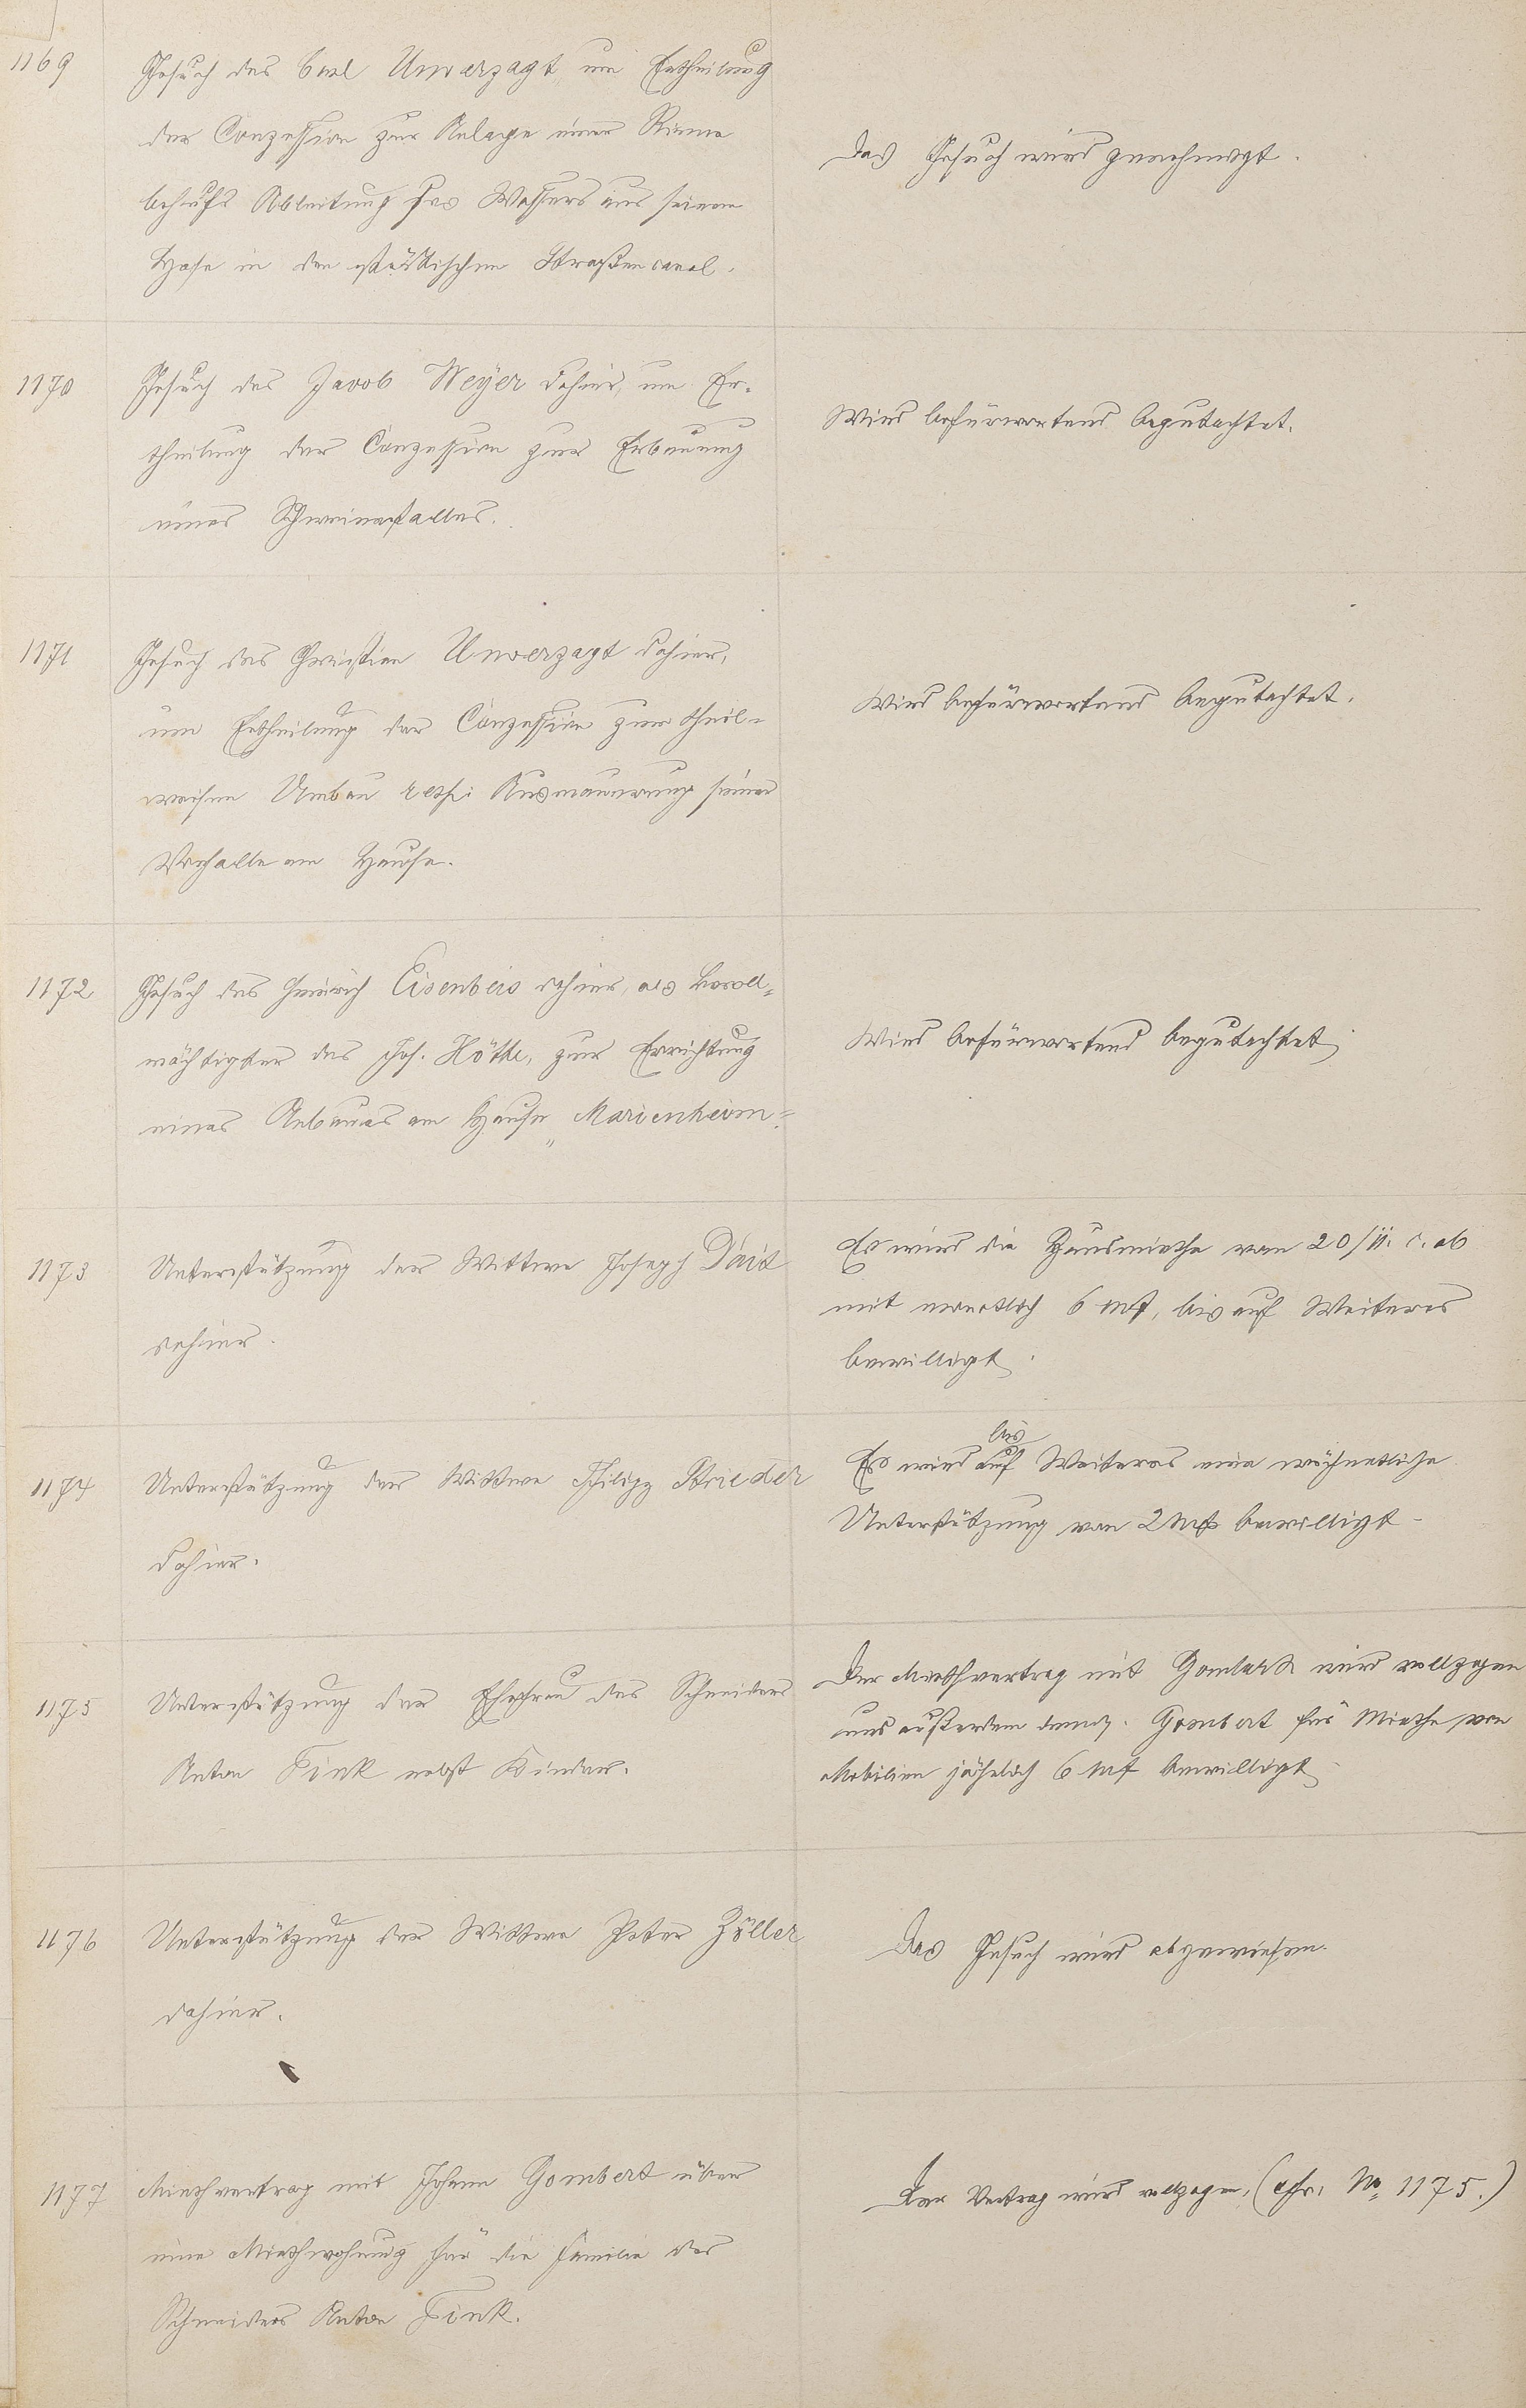 1169
Gesuch des Carl Unverzagt, um Ertheilung
der Conzession zur Anlage einer Rinne
behufs Ableitung des Wassers aus seinem
Hofe in den städtischen Straßencanal.
Das Gesuch wird genehmigt.
1170
Gesuch des Jacob Weyer dahier, um Er-
theilung der Conzession zur Erbauung
eines Schweinestalles.
Wird befürwortend begutachtet.
1171
Gesuch des Christian Unverzagt dahier,
um Ertheilung der Conzession zum theil-
weisen Umbau resp: Ausmauerung seiner
Vorhalle am Hause.
Wird befürwortend begutachtet.
1172
Gesuch des Heinrich Eisenbeis dahier, als Bevoll-
mächtigter des Jos. Höthe, zur Errichtung
eines Anbaues am Hause „Marienheim".
Wird befürwortend begutachtet.
1173
Unterstützung der Wittwe Joseph
dahier.
Es wird die Hausmiethe vom 20/11. c. ab
mit monatlich 6 Mk, bis auf Weiteres
bewilligt.
1174
Unterstützung der Wittwe Philipp Strieder
dahier.
bis
Es wird auf Weiteres eine wöchentliche
Unterstützung von 2 Mk bewilligt.
1175
Unterstützung der Ehefrau des Schneiders
Anton Fink nebst Kinder.
Der Miethvertrag mit Gombert wird vollzogen
und außerdem Gombert für Miethe von
Mobilien jährlich 6 Mk bewilligt.
1176
Unterstützung der Wittwe Peter Zöller
dahier.
Das Gesuch wird abgewiesen.
1177
Miethvertrag mit Johann Gombert über
eine Miethwohnung für die Familie des
Schneiders Anton Fink.
Der Vertrag wird vollzogen, (cfr. No. 1175.)